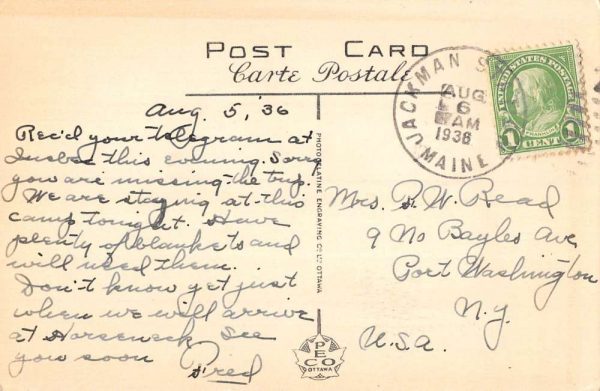 POST CARD
Carte Postale
Aug. 5, '36
Rec'd your telegram at
this evening. Sorry
you are missing the trip.
We are staying at this
camp tonight. Have
plenty of blankets and
will need them.
Don't know yet just
when we will arrive
at Horseneck. See
you soon
Fred
PHOTOGELATINE ENGRAVING CO. LTD. OTTAWA
PECO
OTTAWA
JACKMAN STA.
AUG
6
AM
1936
MAINE
UNITED STATES POSTAGE
FRANKLIN
1 CENT 1
Mrs. W. Read
9 No Bayles Ave.
Port Washington
N.Y.
U.S.A.